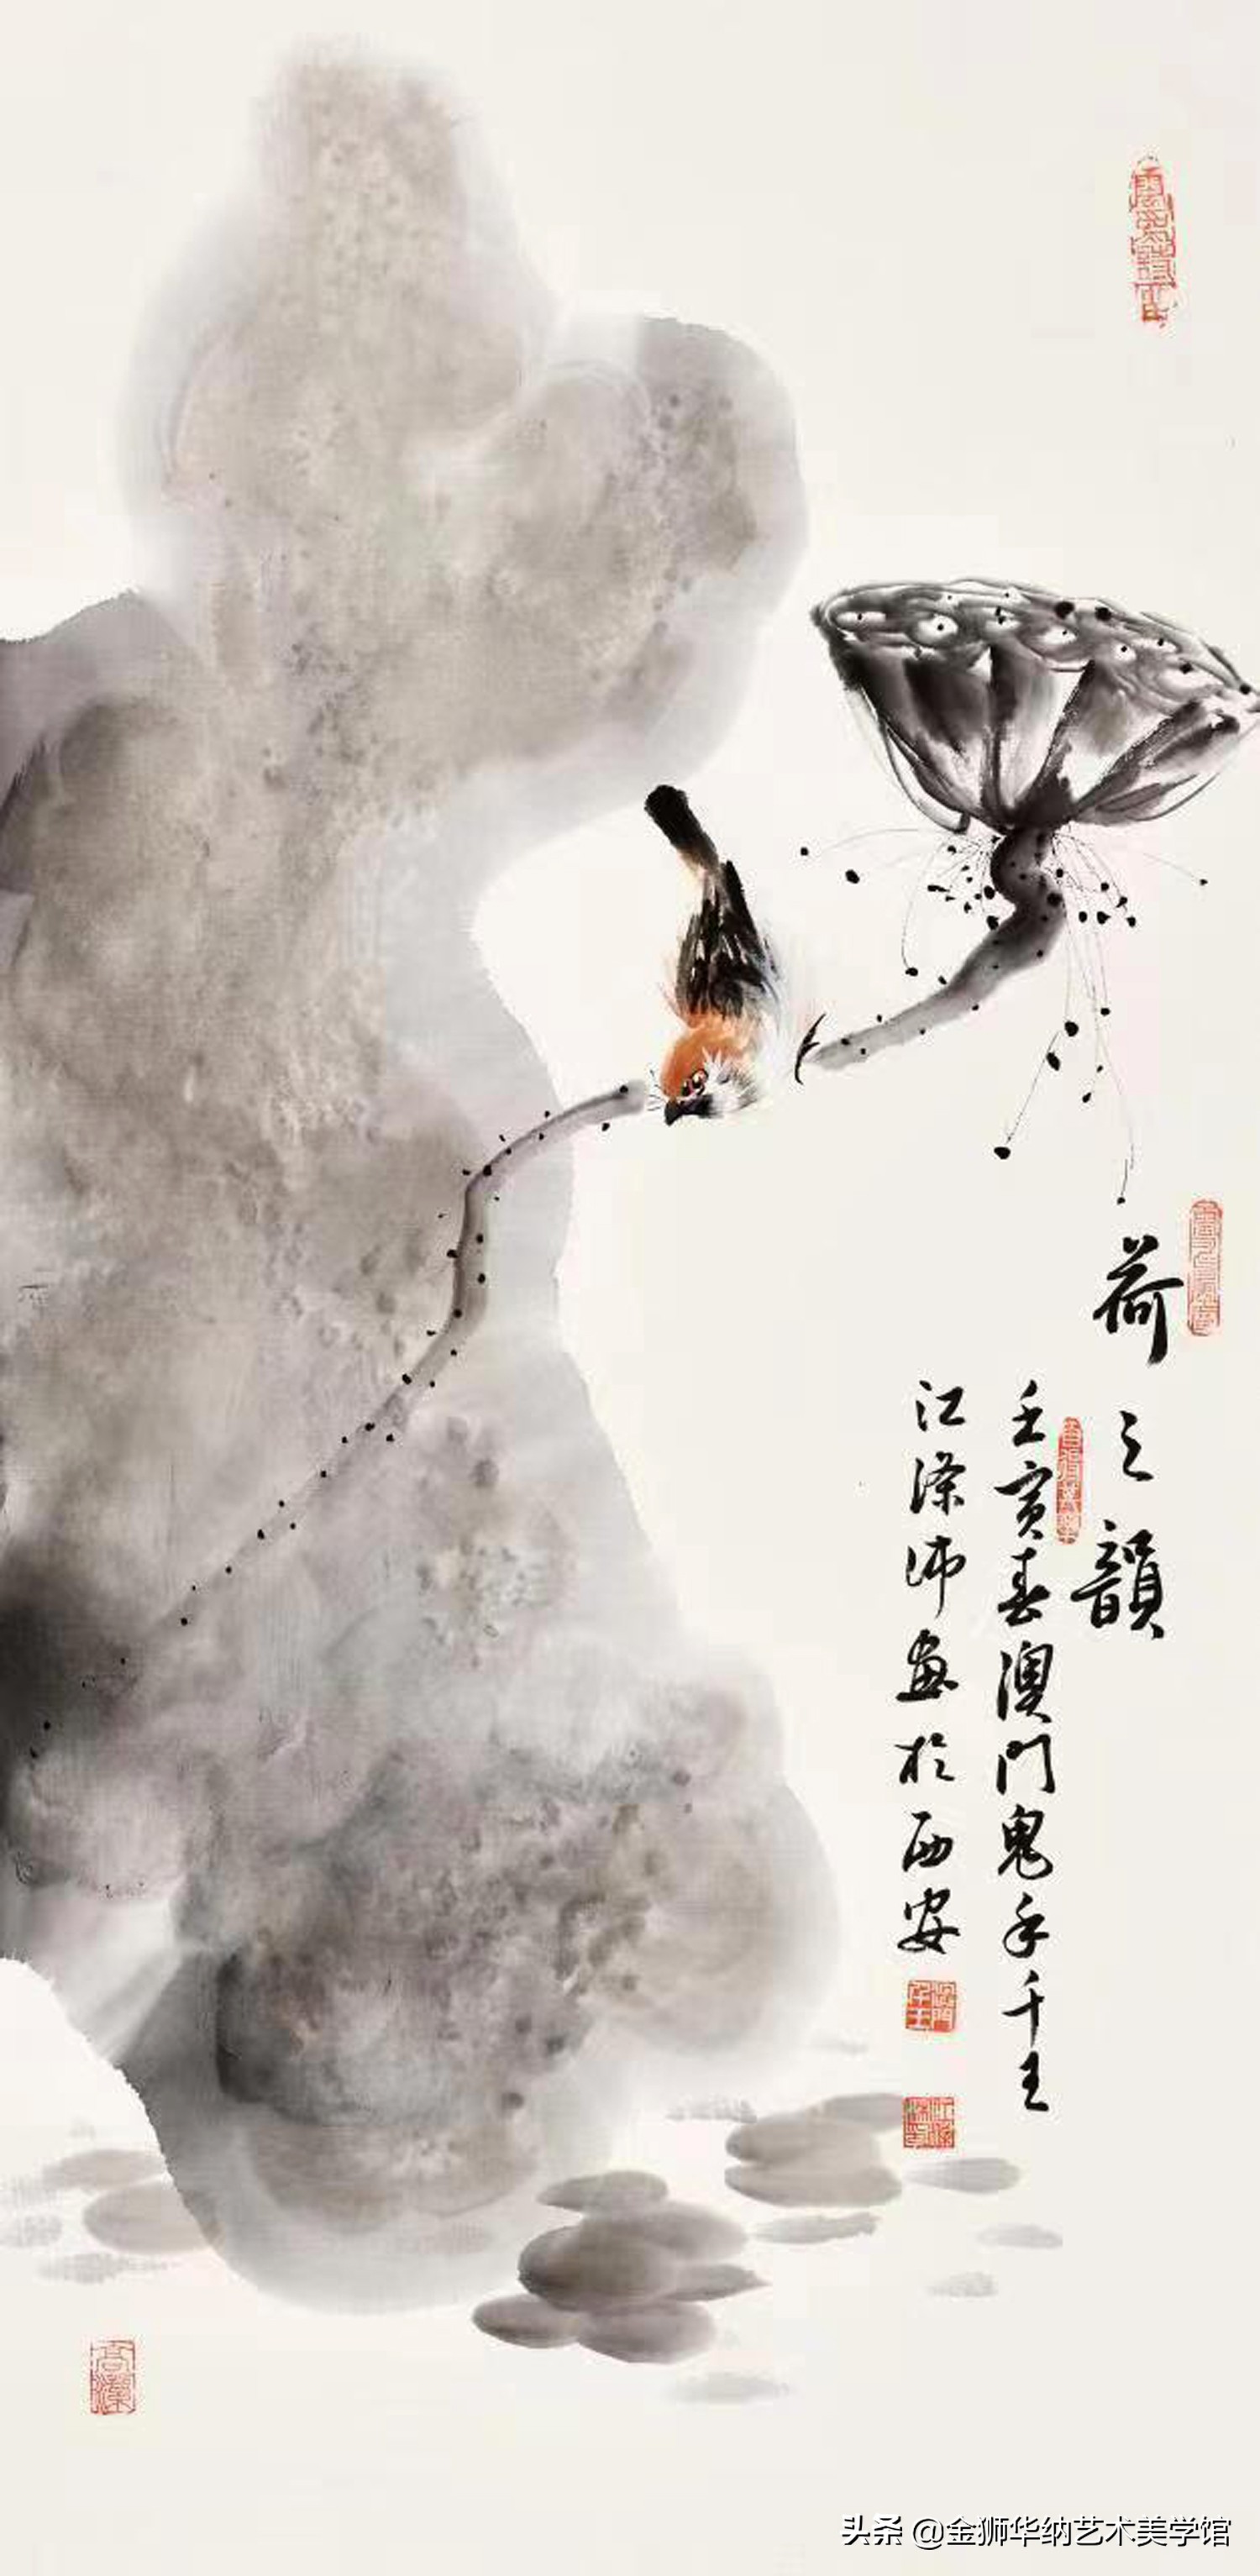 荷之韻
壬寅春澳門鬼手千王
江滌沛畫於西安
头条 @金狮华纳艺术美学馆